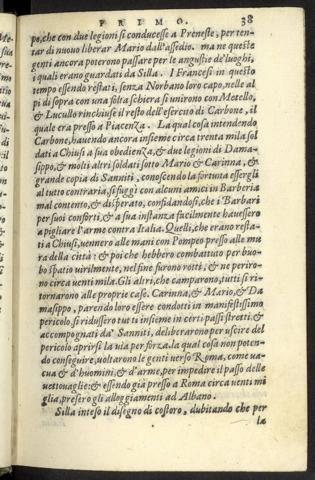 PRIMO. 38
po, che con due legioni si conducesse a Preneste, per ten-
tar di nuouo liberar Mario dall'assedio. ma ne queste
genti ancora poterono passare per le angustie de'luoghi,
i quali erano guardati da Silla. I Francesi in questo
tempo essendo restati, senza Norbano loro capo, nelle al
pi di sopra con una folta schiera si unirono con Metello,
& Lucullo rinchiuse il resto dell'esercito di Carbone, il
quale era presso a Piacenza. La qual cosa intendendo
Carbone, hauendo ancora insieme circa trenta mila sol
dati a Chiusi a sua obedienza, & due legioni di Dama-
sippo, & molti altri soldati sotto Mario & Carinna, &
grande copia di Sanniti, conoscendo la fortuna essergli
al tutto contraria, si fuggì con alcuni amici in Barberia
mal contento, & disperato, confidandosi, che i Barbari
per suoi conforti, & a sua instanza facilmente hauessero
a pigliare l'arme contro Italia. Quelli, che erano resta-
ti a Chiusi, uennero alle mani con Pompeo presso alle mu
ra della città: & poi che hebbero combattuto per buo-
bo spatio uirilmente, nel fine furono rotti, & ne periro-
no circa uenti mila. Gli altri, che camparono, tutti si ri-
tornarono alle proprie case. Carinna, & Mario, & Da
masippo, parendo loro essere condotti in manifestissimo
pericolo, si ridussero tutti insieme in certi passi stretti: &
accompagnati da' Sanniti, deliberarono per uscire del
pericolo aprirsi la uia per forza. la qual cosa non poten-
do conseguire, uoltarono le genti uerso Roma, come ua-
cua & d'huomini, & d'arme, per impedire il passo delle
uettouaglie: & essendo già presso a Roma circa uenti mi
glia, presero gli alloggiamenti ad Albano.
Silla inteso il disegno di costoro, dubitando che per
la